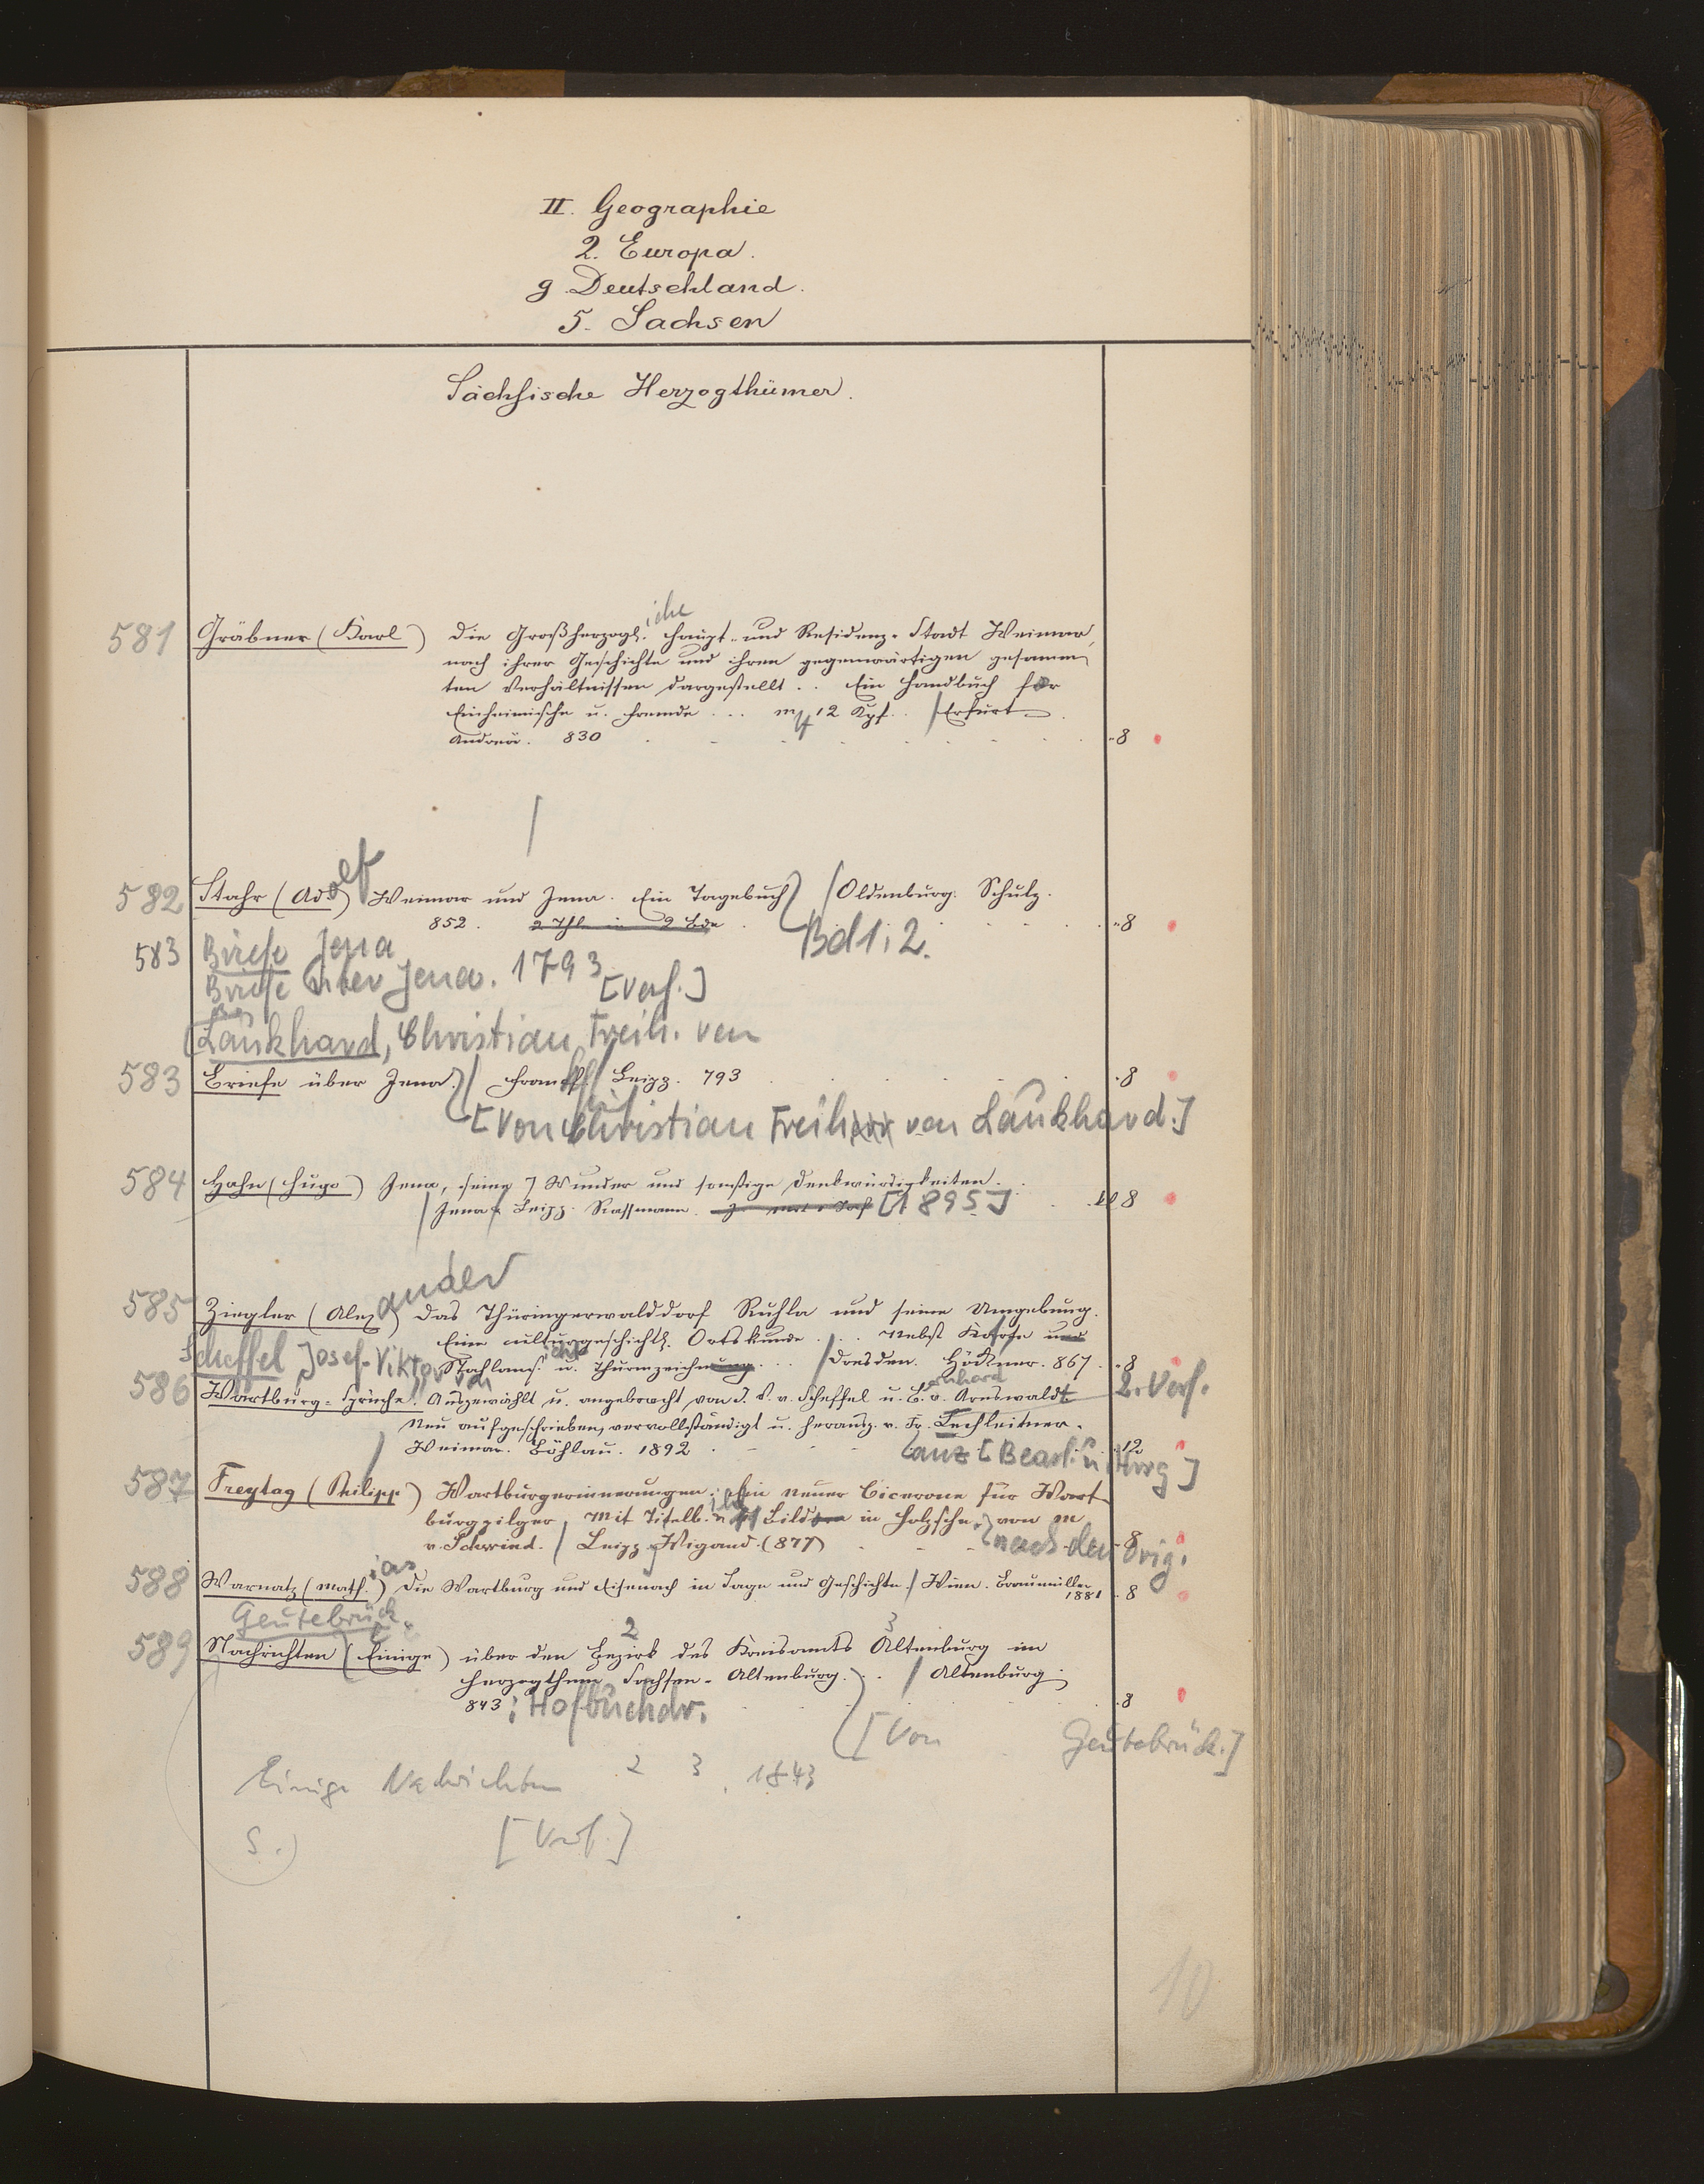 II. Geographie
2. Europa.
g Deutschland.
5. Sachsen
Sächsische Herzogthümer.
581 Gräbner (Karl) Die Großherzogl.iche Haupt- und Residenz-Stadt Weimar,
nach ihrer Geschichte und ihren gegenwärtigen gesamm
ten Verhältnissen dargestellt .. Ein Handbuch für
Einheimische u. Fremde ... 12 Kpf. . / Erfurt
Andreä. 830 8
582 Stahr (Adolf) Weimar und Jena. Ein Tagebuch / Oldenburg. Schulz.
852. 2 Thl. in 2 Bde Bd 1. 2. 8
583 Briefe Jena
Briefe über Jena. 1793 [Verf.]
[Laukhard, Christian Freih. von
583 Briefe über Jena. / Frankf / Leipz. 793 8
[Von Christian Freih von Laukhard.]
584 Hahn (Hugo) Jena, seine 7 Wunder und sonstige Denkwürdigkeiten.
/ Jena Leipz. Rassmann. [1895] 8
585 Ziegler (Alexander) Das Thüringerwalddorf Ruhla und seine Umgebung.
Eine culturgeschichtl. Ortskunde ... Nebst Karte und
Stahlans. u. Thurmzeichnung ... / Dresden. Höckner. 867. 8
Scheffel Josef-Viktor von
586 Wartburg-Sprüche. Ausgewählt u. angebracht von J. V. v. Scheffel u. Bernhard v. Arnswaldt 2. Verf.
Neu aufgeschrieben, vervollständigt u. herausg. v. Fr. Lechleitner.
/ Weimar. Böhlau. 1892 12
[Bearb. u. Hrsg]
587 Freytag (Philipp) Wartburgerinnerungen. Ein neuer Cicerone für Wart
burgpilger. Mit Titelb. u. Bildern in Holzschn. von M
v. Schwind. / Leipz. Wigand. (877) 8
nach den Orig.
588 Warnatz (Math.ias) Die Wartburg und Eisenach in Sage und Geschichte. / Wien. Braumüller
1881 8
Geutebrück.
589 Nachrichten (Einige) über den Bezirk 2 des Kreisamts 3 Altenburg im
Herzogthum Sachsen-Altenburg. .. / Altenburg
843: Hofbuchdr. 8
[Von Geutebrück.]
Einige Nachrichten 2 3. 1843
S. [Verf.]
10